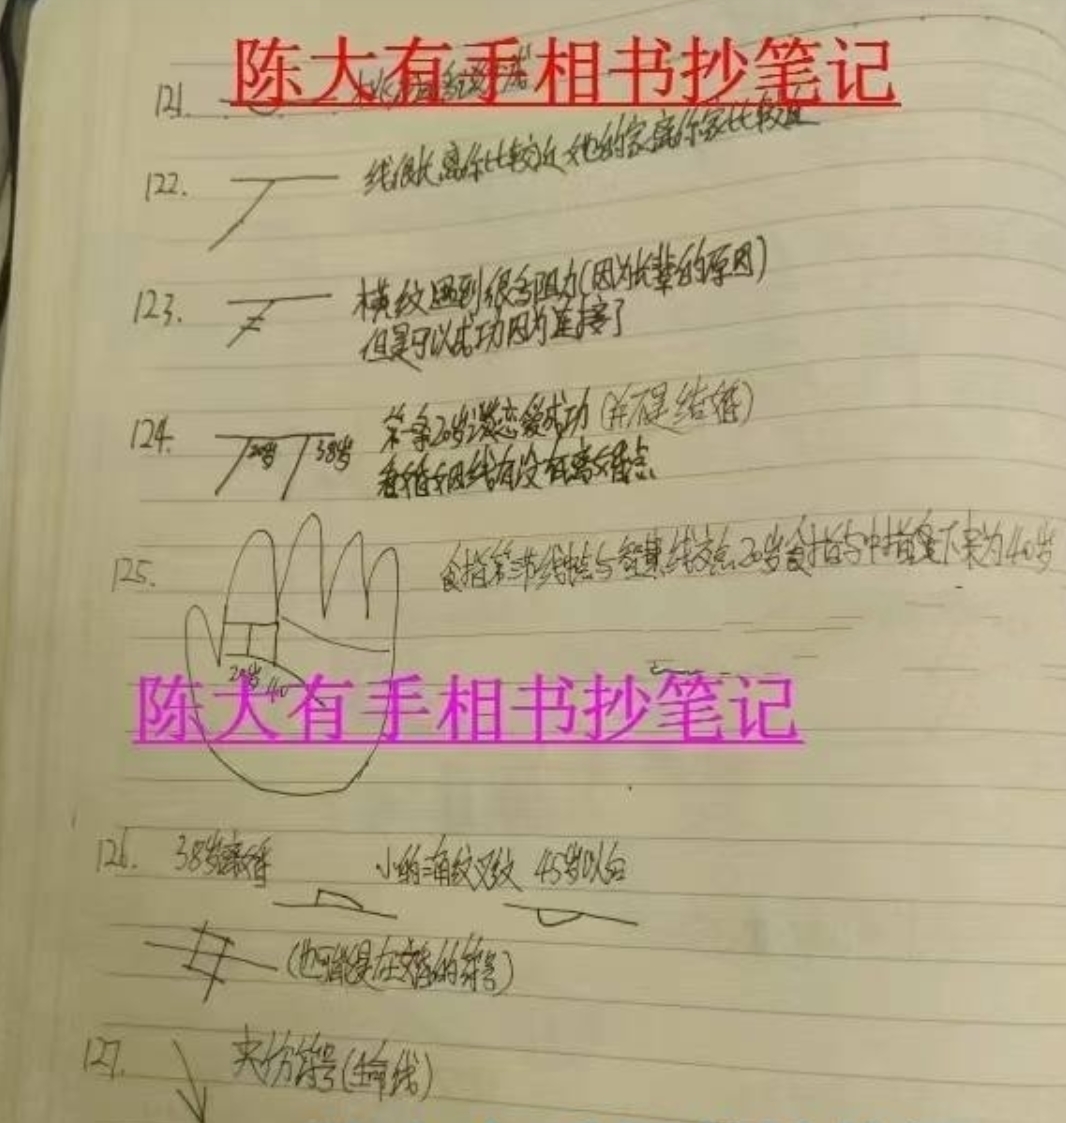 陈大有手相书抄笔记
121.
122. 线很长离你比较近 她的家离你家比较近
123. 横纹遇到很多阻力(因为长辈的原因)
但是可以成功因为连接了
124. 20岁 38岁 第一条20岁谈恋爱成功(并不是结婚)
看婚姻线有没有离婚点
125. 食指第三节线中点与智慧线交点20岁食指与中指缝下来为40岁
20岁 40
陈大有手相书抄笔记
126. 38岁离婚 小的三角纹叉纹 45岁以后
(也可能是在婚的符号)
127. 符号(生命线)